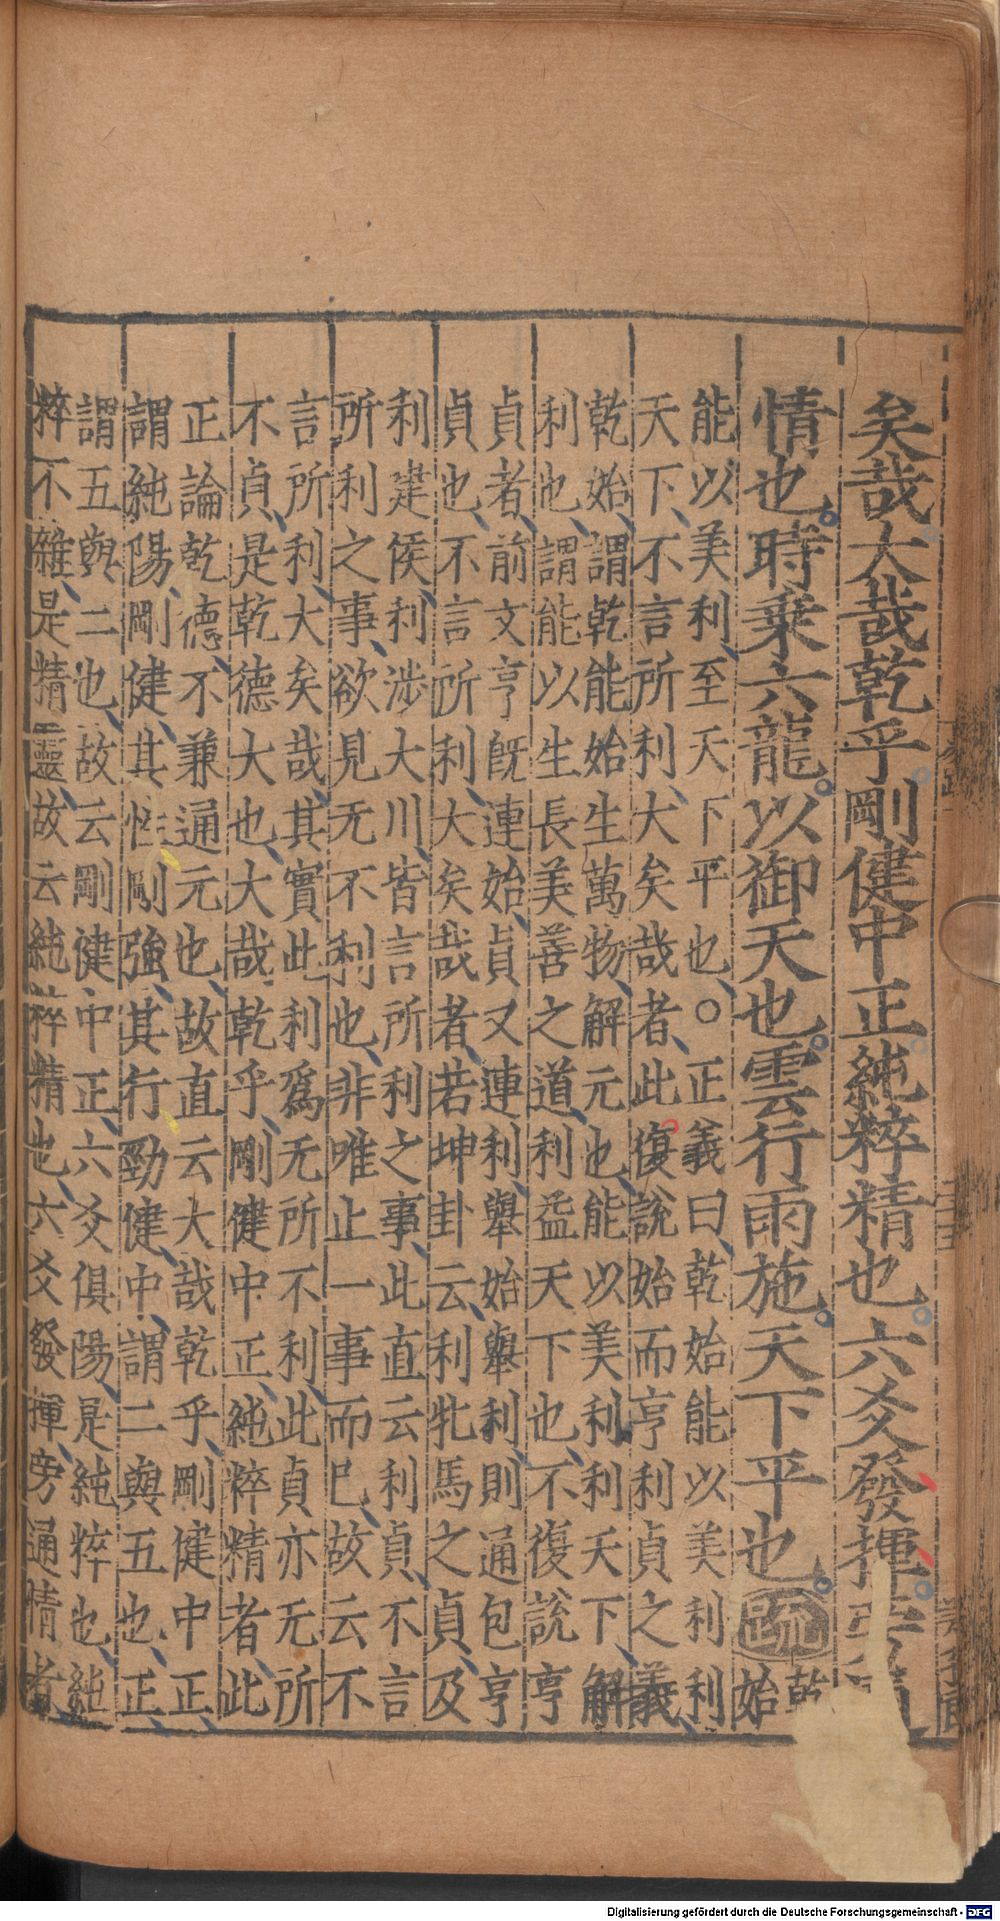 矣哉大哉乾乎剛健中正純粹精也六爻發揮旁
情也時乗六龍以御天也雲行雨施天下平也疏乾
始
能以美利至天下平也○正義曰乾始能以美利利
天下不言所利大矣哉者此復說始而亨利貞之義
乾始謂乾能始生萬物解元也能以美利利天下解
利也謂能以生長美善之道利益天下也不復說亨
貞者前文亨既連始貞又連利舉始舉利則通包亨
貞也不言所利大矣哉者若坤卦云利牝馬之貞及
利建侯利涉大川皆言所利之事此直云利貞不言
所利之事欲見无不利也非唯止一事而巳故云不
言所利大矣哉其實此利爲无所不利此貞亦无所
不貞是乾德大也大哉乾乎剛健中正純粹精者此
正論乾德不兼通元也故直云大哉乾乎剛健中正
謂純陽剛健其性剛強其行勁健中謂二與五也正
謂五與二也故云剛健中正六爻俱陽是純粹也純
粹不雜是精靈故云純粹精也六爻發揮旁通情者
Digitalisierung gefördert durch die Deutsche Forschungsgemeinschaft - DFG